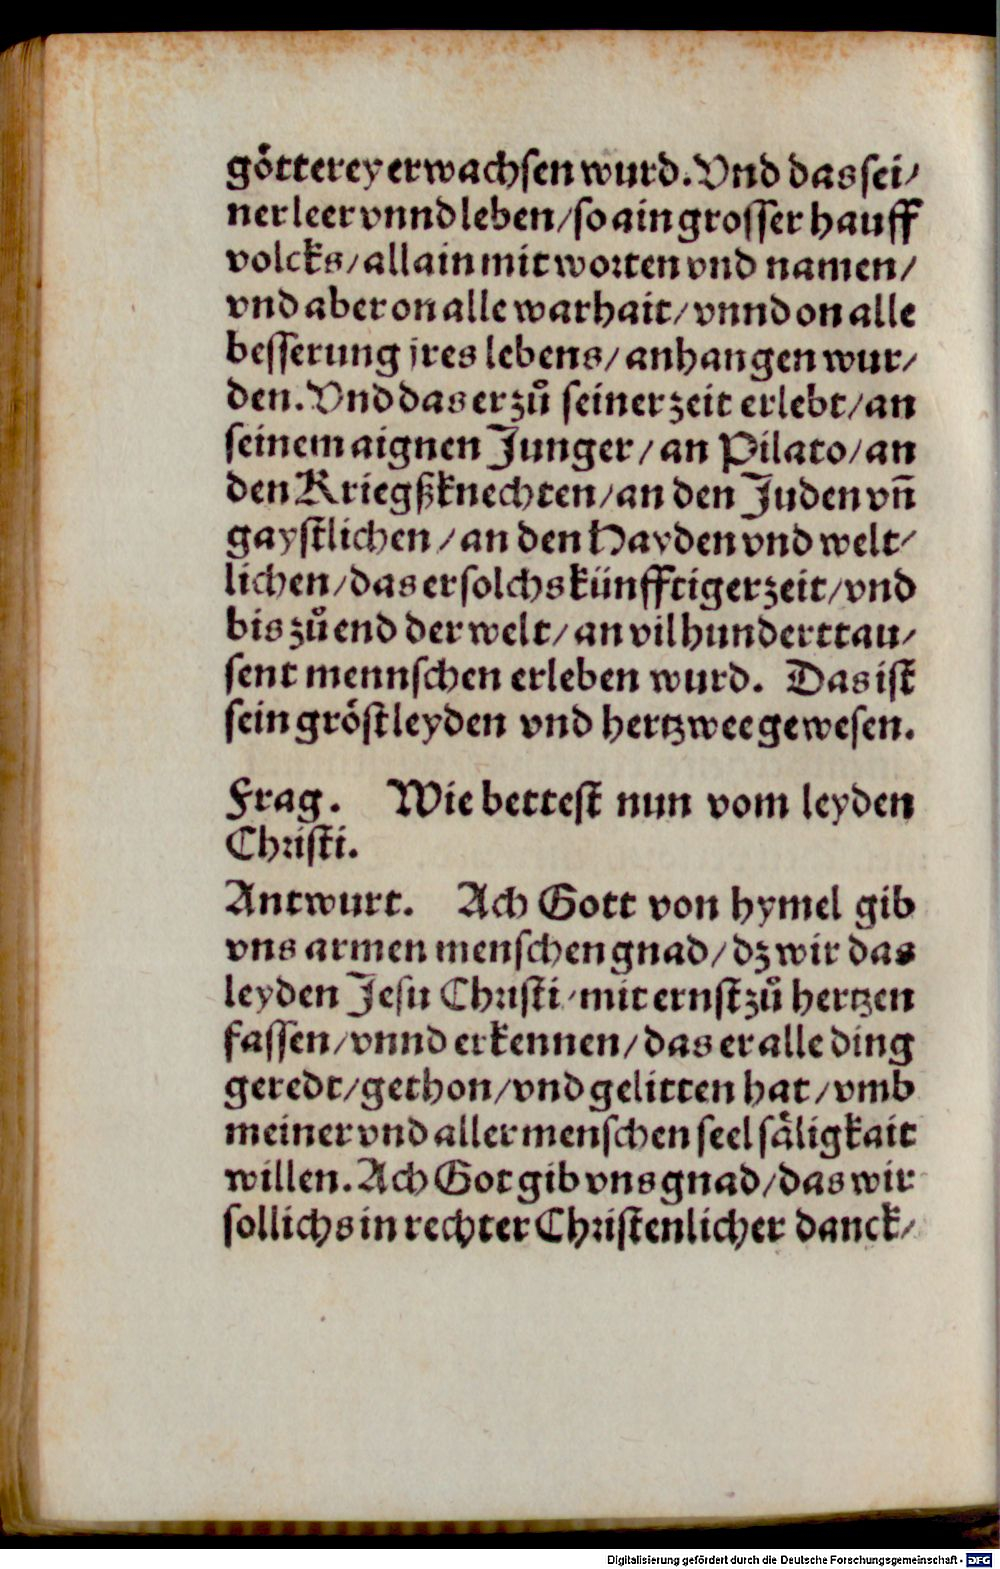 götterey erwachsen wurd. Vnd das sei/
ner leer vnnd leben/ so ain grosser hauff
volcks/ allain mit worten vnd namen/
vnd aber on alle warhait/ vnnd on alle
besserung jres lebens/ anhangen wur/
den. Vnd das er zů seiner zeit erlebt/ an
seinem aignen Junger/ an Pilato/ an
den Kriegßknechten/ an den Juden vñ
gaystlichen/ an den Hayden vnd welt/
lichen/ das er solchs künfftiger zeit/ vnd
bis zů end der welt/ an vil hundert tau/
sent mennschen erleben wurd. Das ist
sein gröst leyden vnd hertzwee gewesen.
Frag. Wie bettest nun vom leyden
Christi.
Antwurt. Ach Gott von hymel gib
vns armen menschen gnad/ dz wir das
leyden Jesu Christi/ mit ernst zů hertzen
fassen/ vnnd erkennen/ das er alle ding
geredt/ gethon/ vnd gelitten hat/ vmb
meiner vnd aller menschen seel säligkait
willen. Ach Got gib vns gnad/ das wir
sollichs in rechter Christenlicher danck/
Digitalisierung gefördert durch die Deutsche Forschungsgemeinschaft - DFG